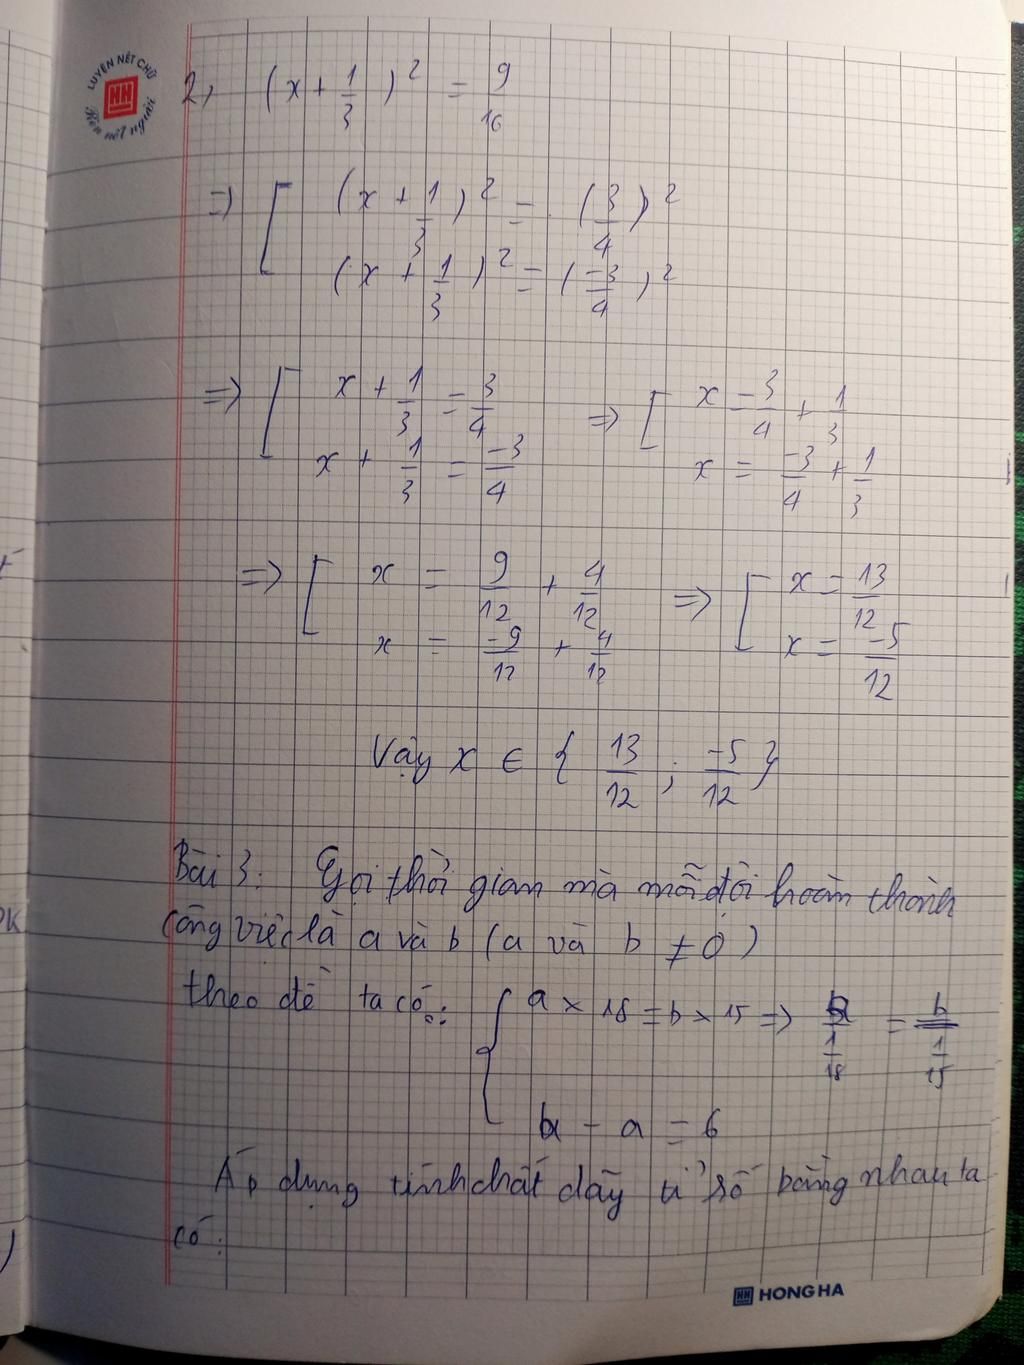 LUYỆN NÉT CHỮ
HH
Rèn nết người
2, (x + 1/3)² = 9/16
=> [ (x + 1/3)² = (3/4)²
(x + 1/3)² = (-3/4)²
=> [ x + 1/3 = 3/4 => [ x = 3/4 + 1/3
x + 1/3 = -3/4 x = -3/4 + 1/3
=> [ x = 9/12 + 4/12 => [ x = 13/12
x = -9/12 + 4/12 x = -5/12
Vậy x ∈ { 13/12 ; -5/12 }
Bài 3: Gọi thời gian mà mỗi đội hoàn thành
công việc là a và b (a và b ≠ 0)
theo đề ta có: { a × 18 = b × 15 => a/(1/18) = b/(1/15)
b - a = 6
Áp dụng tính chất dãy tỉ số bằng nhau ta
có:
HH HONG HA